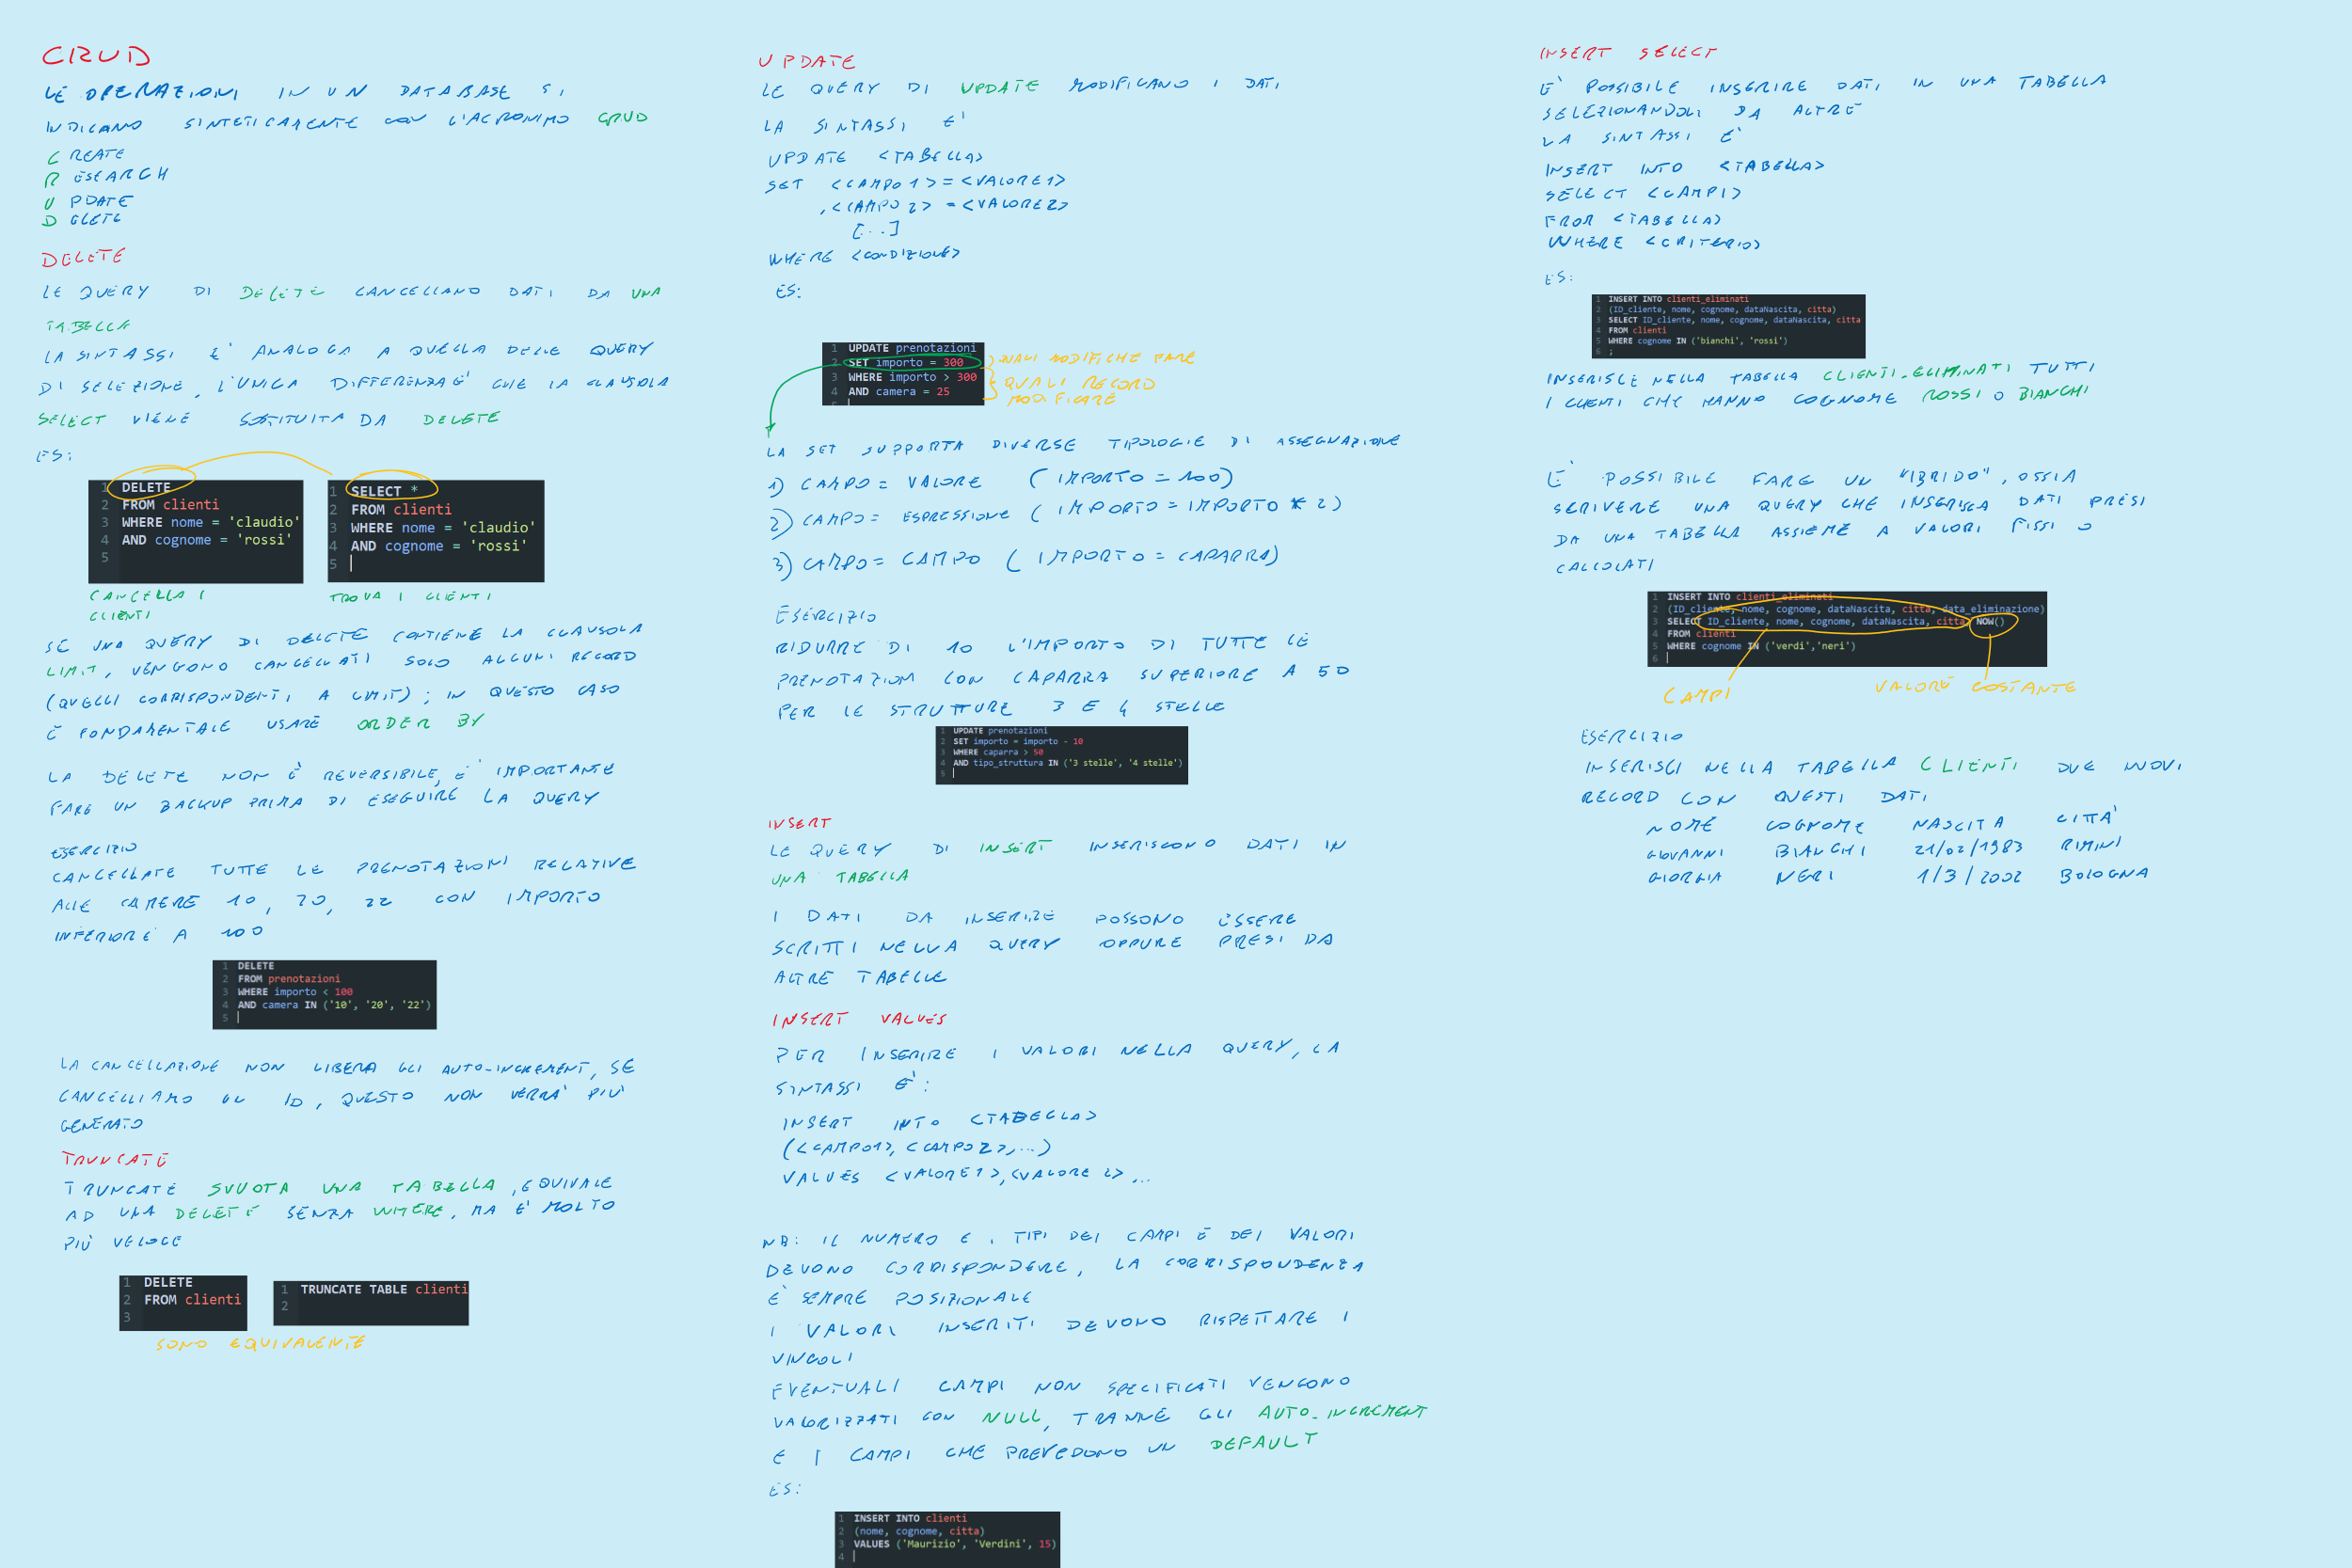 CRUD
LE OPERAZIONI IN UN DATABASE SI
INDICANO SINTETICAMENTE CON L'ACRONIMO CRUD
CREATE
RESEARCH
UPDATE
DELETE
DELETE
LE QUERY DI DELETE CANCELLANO DATI DA UNA
TABELLA
LA SINTASSI E' ANALOGA A QUELLA DELLE QUERY
DI SELEZIONE, L'UNICA DIFFERENZA E' CHE LA CLAUSOLA
SELECT VIENE SOSTITUITA DA DELETE
ES:
1 DELETE
2 FROM clienti
3 WHERE nome = 'claudio'
4 AND cognome = 'rossi'
5
1 SELECT *
2 FROM clienti
3 WHERE nome = 'claudio'
4 AND cognome = 'rossi'
5
CANCELLA I
CLIENTI
TROVA I CLIENTI
SE UNA QUERY DI DELETE CONTIENE LA CLAUSOLA
LIMIT, VENGONO CANCELLATI SOLO ALCUNI RECORD
(QUELLI CORRISPONDENTI A LIMIT); IN QUESTO CASO
È FONDAMENTALE USARE ORDER BY
LA DELETE NON È REVERSIBILE, E' IMPORTANTE
FARE UN BACKUP PRIMA DI ESEGUIRE LA QUERY
ESERCIZIO
CANCELLATE TUTTE LE PRENOTAZIONI RELATIVE
ALLE CAMERE 10, 20, 22 CON IMPORTO
INFERIORE A 100
1 DELETE
2 FROM prenotazioni
3 WHERE importo < 100
4 AND camera IN ('10', '20', '22')
5
LA CANCELLAZIONE NON LIBERA GLI AUTO-INCREMENT, SE
CANCELLIAMO UN ID, QUESTO NON VERRA' PIU'
GENERATO
TRUNCATE
TRUNCATE SVUOTA UNA TABELLA, EQUIVALE
AD UNA DELETE SENZA WHERE, MA E' MOLTO
PIÙ VELOCE
1 DELETE
2 FROM clienti
3
1 TRUNCATE TABLE clienti
2
SONO EQUIVALENTE
UPDATE
LE QUERY DI UPDATE MODIFICANO I DATI
LA SINTASSI E'
UPDATE <TABELLA>
SET <CAMPO1>=<VALORE1>
,<CAMPO2>=<VALORE2>
[...]
WHERE <CONDIZIONE>
ES:
1 UPDATE prenotazioni
2 SET importo = 300
3 WHERE importo > 300
4 AND camera = 25
5
QUALI MODIFICHE FARE
QUALI RECORD
MODIFICARE
LA SET SUPPORTA DIVERSE TIPOLOGIE DI ASSEGNAZIONE
1) CAMPO = VALORE (IMPORTO = 100)
2) CAMPO = ESPRESSIONE (IMPORTO = IMPORTO * 2)
3) CAMPO = CAMPO (IMPORTO = CAPARRA)
ESERCIZIO
RIDURRE DI 10 L'IMPORTO DI TUTTE LE
PRENOTAZIONI CON CAPARRA SUPERIORE A 50
PER LE STRUTTURE 3 E 4 STELLE
1 UPDATE prenotazioni
2 SET importo = importo - 10
3 WHERE caparra > 50
4 AND tipo_struttura IN ('3 stelle', '4 stelle')
5
INSERT
LE QUERY DI INSERT INSERISCONO DATI IN
UNA TABELLA
I DATI DA INSERIRE POSSONO ESSERE
SCRITTI NELLA QUERY OPPURE PRESI DA
ALTRE TABELLE
INSERT VALUES
PER INSERIRE I VALORI NELLA QUERY, LA
SINTASSI E':
INSERT INTO <TABELLA>
(<CAMPO1>, <CAMPO2>,...)
VALUES <VALORE1>,<VALORE2>,...
NB: IL NUMERO E I TIPI DEI CAMPI E DEI VALORI
DEVONO CORRISPONDERE, LA CORRISPONDENZA
E' SEMPRE POSIZIONALE
I VALORI INSERITI DEVONO RISPETTARE I
VINCOLI
EVENTUALI CAMPI NON SPECIFICATI VENGONO
VALORIZZATI CON NULL, TRANNE GLI AUTO-INCREMENT
E I CAMPI CHE PREVEDONO UN DEFAULT
ES:
1 INSERT INTO clienti
2 (nome, cognome, citta)
3 VALUES ('Maurizio', 'Verdini', 15)
4
INSERT SELECT
E' POSSIBILE INSERIRE DATI IN UNA TABELLA
SELEZIONANDOLI DA ALTRE
LA SINTASSI E'
INSERT INTO <TABELLA>
SELECT <CAMPI>
FROM <TABELLA>
WHERE <CRITERIO>
ES:
1 INSERT INTO clienti_eliminati
2 (ID_cliente, nome, cognome, dataNascita, citta)
3 SELECT ID_cliente, nome, cognome, dataNascita, citta
4 FROM clienti
5 WHERE cognome IN ('bianchi', 'rossi')
6 ;
INSERISCE NELLA TABELLA CLIENTI_ELIMINATI TUTTI
I CLIENTI CHE HANNO COGNOME ROSSI O BIANCHI
E' POSSIBILE FARE UN "IBRIDO", OSSIA
SCRIVERE UNA QUERY CHE INSERISCA DATI PRESI
DA UNA TABELLA ASSIEME A VALORI FISSI O
CALCOLATI
1 INSERT INTO clienti_eliminati
2 (ID_cliente, nome, cognome, dataNascita, citta, data_eliminazione)
3 SELECT ID_cliente, nome, cognome, dataNascita, citta, NOW()
4 FROM clienti
5 WHERE cognome IN ('verdi','neri')
6
CAMPI
VALORE COSTANTE
ESERCIZIO
INSERISCI NELLA TABELLA CLIENTI DUE NUOVI
RECORD CON QUESTI DATI
NOME COGNOME NASCITA CITTA'
GIOVANNI BIANCHI 21/02/1983 RIMINI
GIORGIA NERI 1/3/2002 BOLOGNA